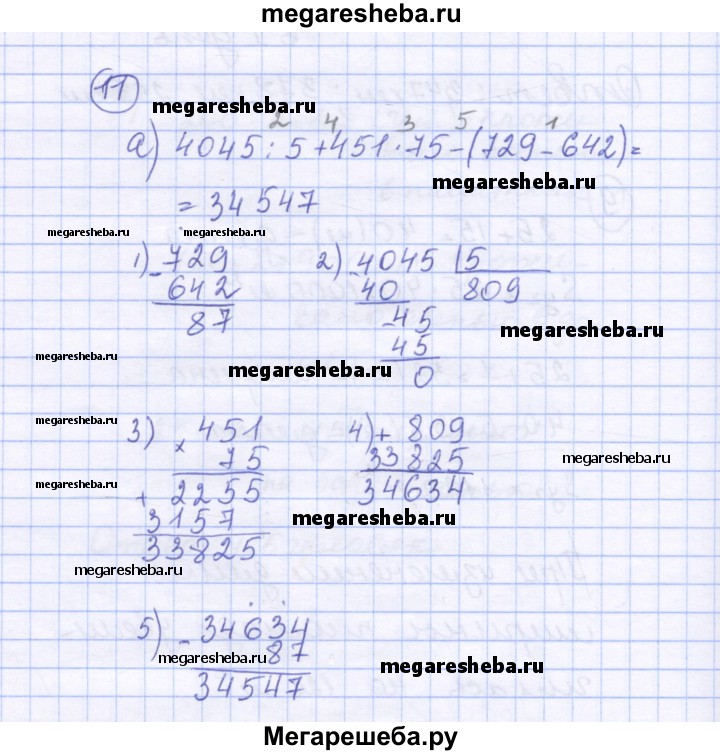 megaresheba.ru
11
megaresheba.ru
2 4 3 5 1
а) 4045 : 5 + 451 · 75 - (729 - 642) =
megaresheba.ru
= 34 547
megaresheba.ru megaresheba.ru
1) - 729 2) - 4045 | 5
642 40 809
87 - 45
megaresheba.ru
45
megaresheba.ru megaresheba.ru
0
3) × 451 4) + 809
megaresheba.ru
75 33825
megaresheba.ru
megaresheba.ru + 2255 34634
3157 megaresheba.ru
33825
megaresheba.ru
5) - 34634
87
megaresheba.ru megaresheba.ru
34547
Мегарешеба.ру